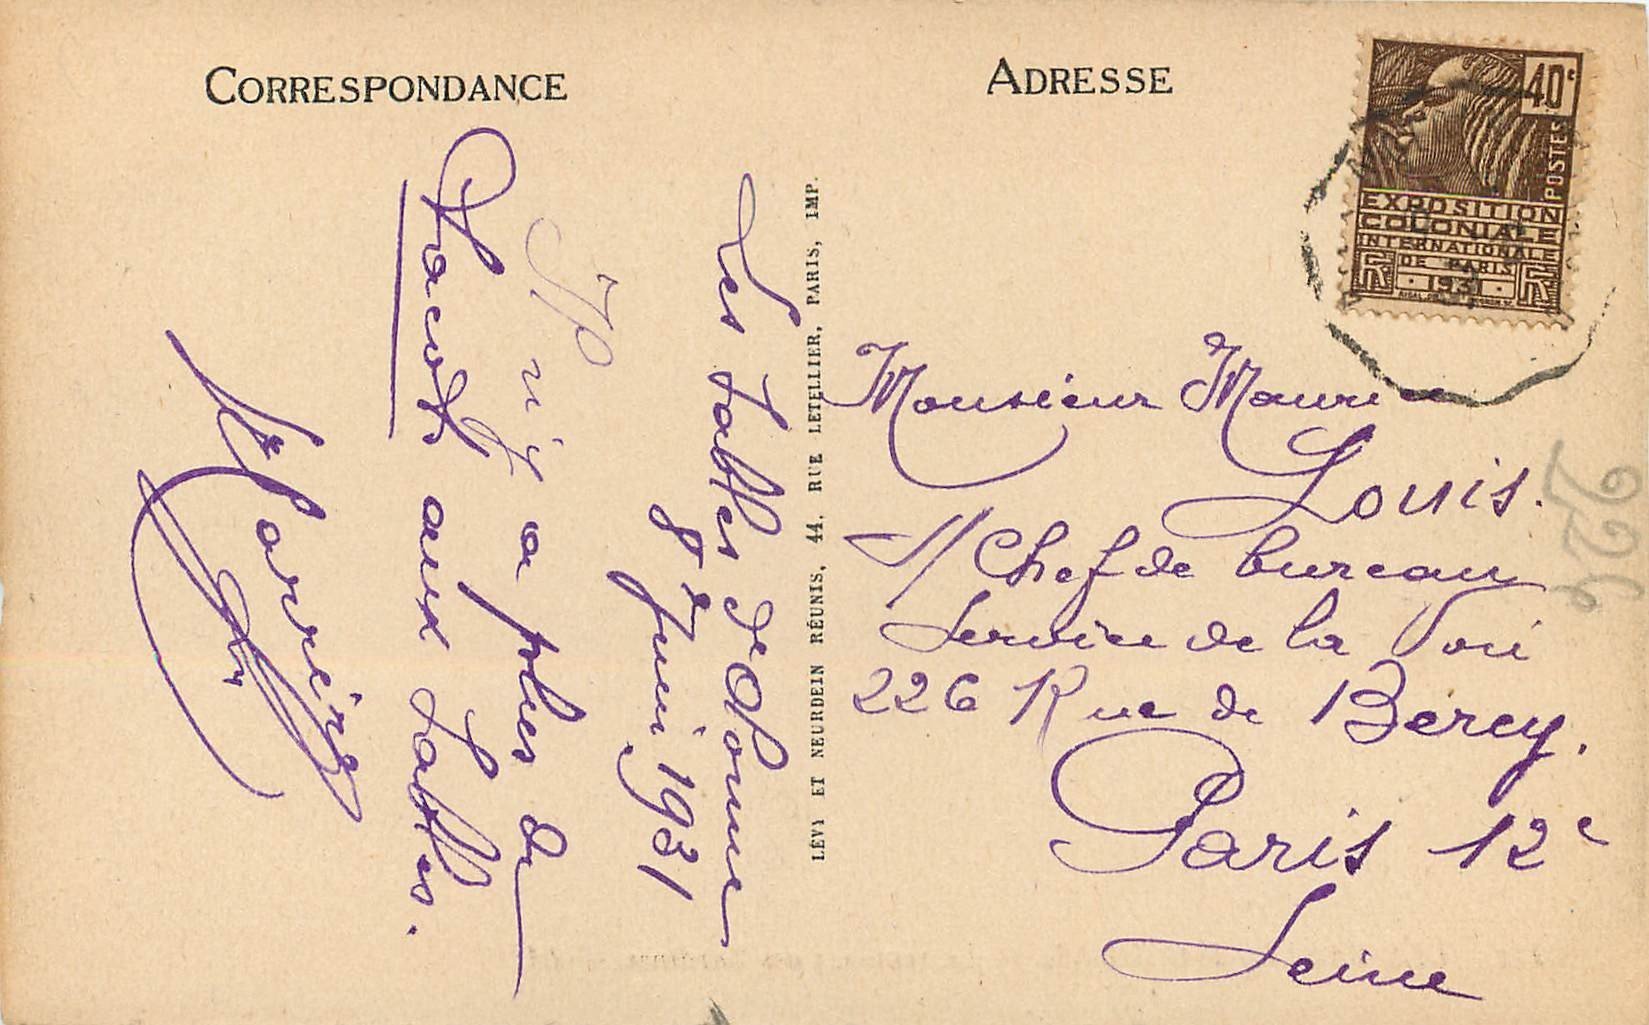 CORRESPONDANCE
Les Sables d'Olonne
8 Juin 1931
Il n'y a plus de
Chacals aux Sables.
LÉVY ET NEURDEIN RÉUNIS, 44, RUE LETELLIER, PARIS, IMP.
ADRESSE
40c
POSTES
EXPOSITION
COLONIALE
INTERNATIONALE
DE PARIS
1931
Monsieur Maurice
Louis.
s/ Chef de bureau
Service de la Voie
226 Rue de Bercy.
Paris 12e
Seine